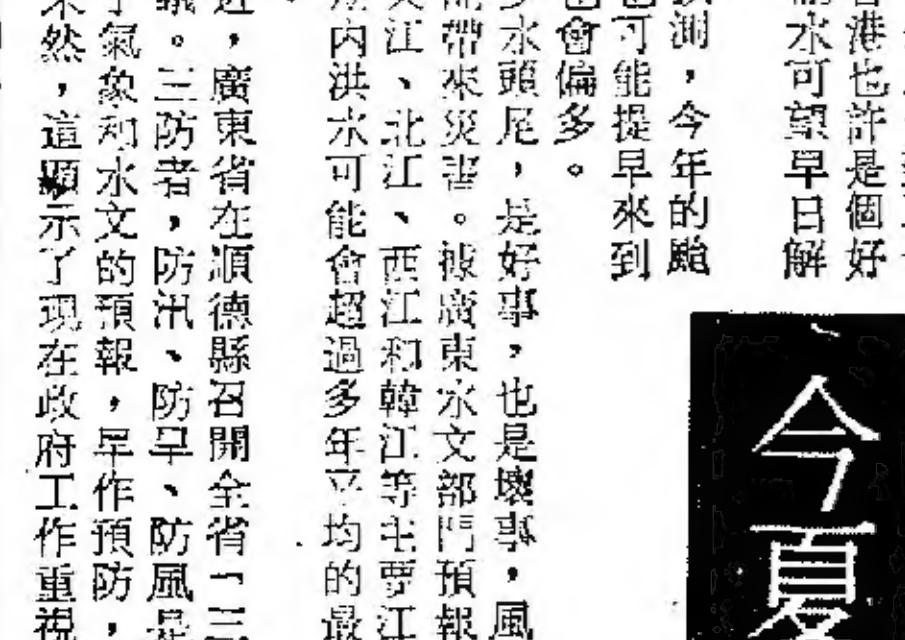 香港也許是個好
水可望早日解
測，今年的颱
可能提早來到
會偏多。
水頭尾，是好事，也是壞事，風
帶來災害。被廣東水文部門預報
江、北江、西江和韓江等主要江
內洪水可能會超過多年平均的最
，廣東省在順德縣召開全省「三
。三防者，防汛、防旱、防風是
氣象和水文的預報，早作預防，
然，這顯示了現在政府工作重視
今夏